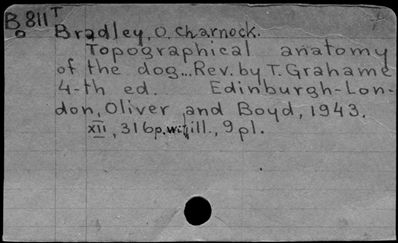 B 811T
Bradley, O. Charnock.
Topographical anatomy
of the dog... Rev. by T. Grahame
4-th ed. Edinburgh-Lon-
don, Oliver and Boyd, 1943.
XII, 316p. ill., 9 pl.